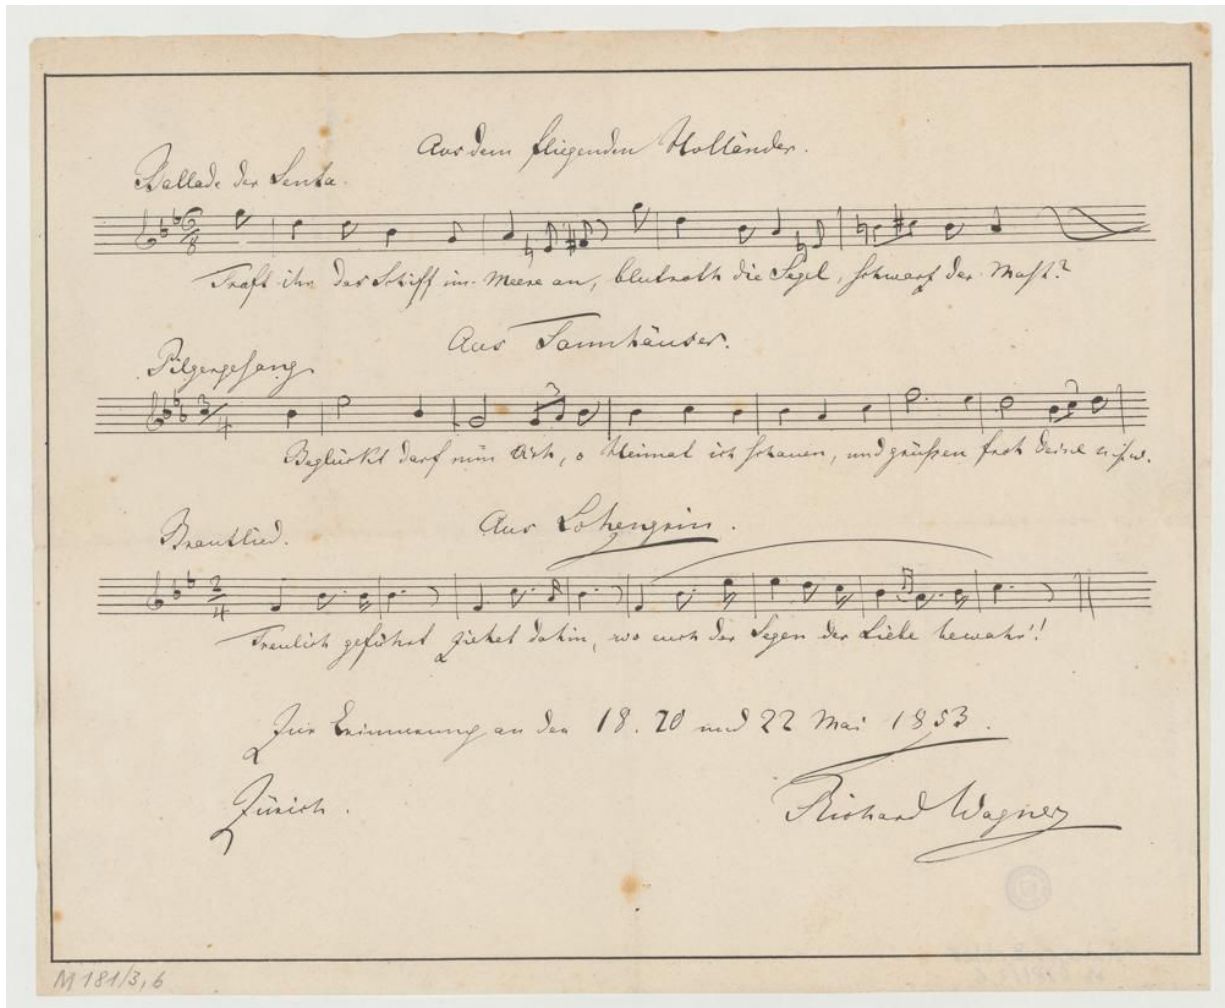 Aus dem fliegenden Holländer.
Ballade der Senta.
6/8
Traft ihr das Schiff im Meere an, blutroth die Segel, schwarz der Mast?
Aus Tannhäuser.
Pilgergesang
3/4
3
Beglückt darf nun dich, o Heimat ich schauen, und grüßen froh deine u.s.w.
Aus Lohengrin.
Brautlied.
2/4
Treulich geführt ziehet dahin, wo euch der Segen der Liebe bewahr'!
Zur Erinnerung an den 18. 20 und 22 Mai 1853.
Zürich.
Richard Wagner
M 181/3,6